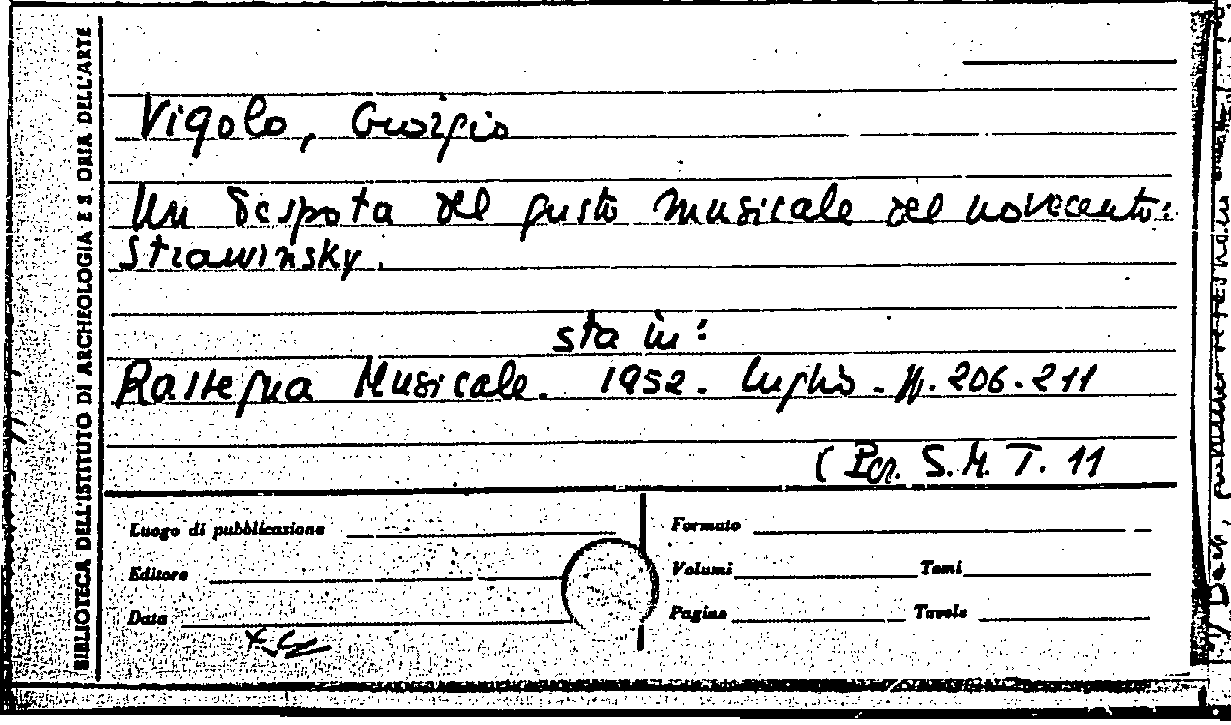 BIBLIOTECA DELL'ISTITUTO DI ARCHEOLOGIA E S ORIA DELL'ARTE
Vigolo, Giorgio
Un despota del gusto musicale del novecento:
Strawinsky.
sta in:
Rassegna Musicale. 1952. luglio - pp. 206-211
( Per. S.M. T. 11
Luogo di pubblicazione
Formato
Editore
Volumi
Tomi
Data
Pagine
Tavole